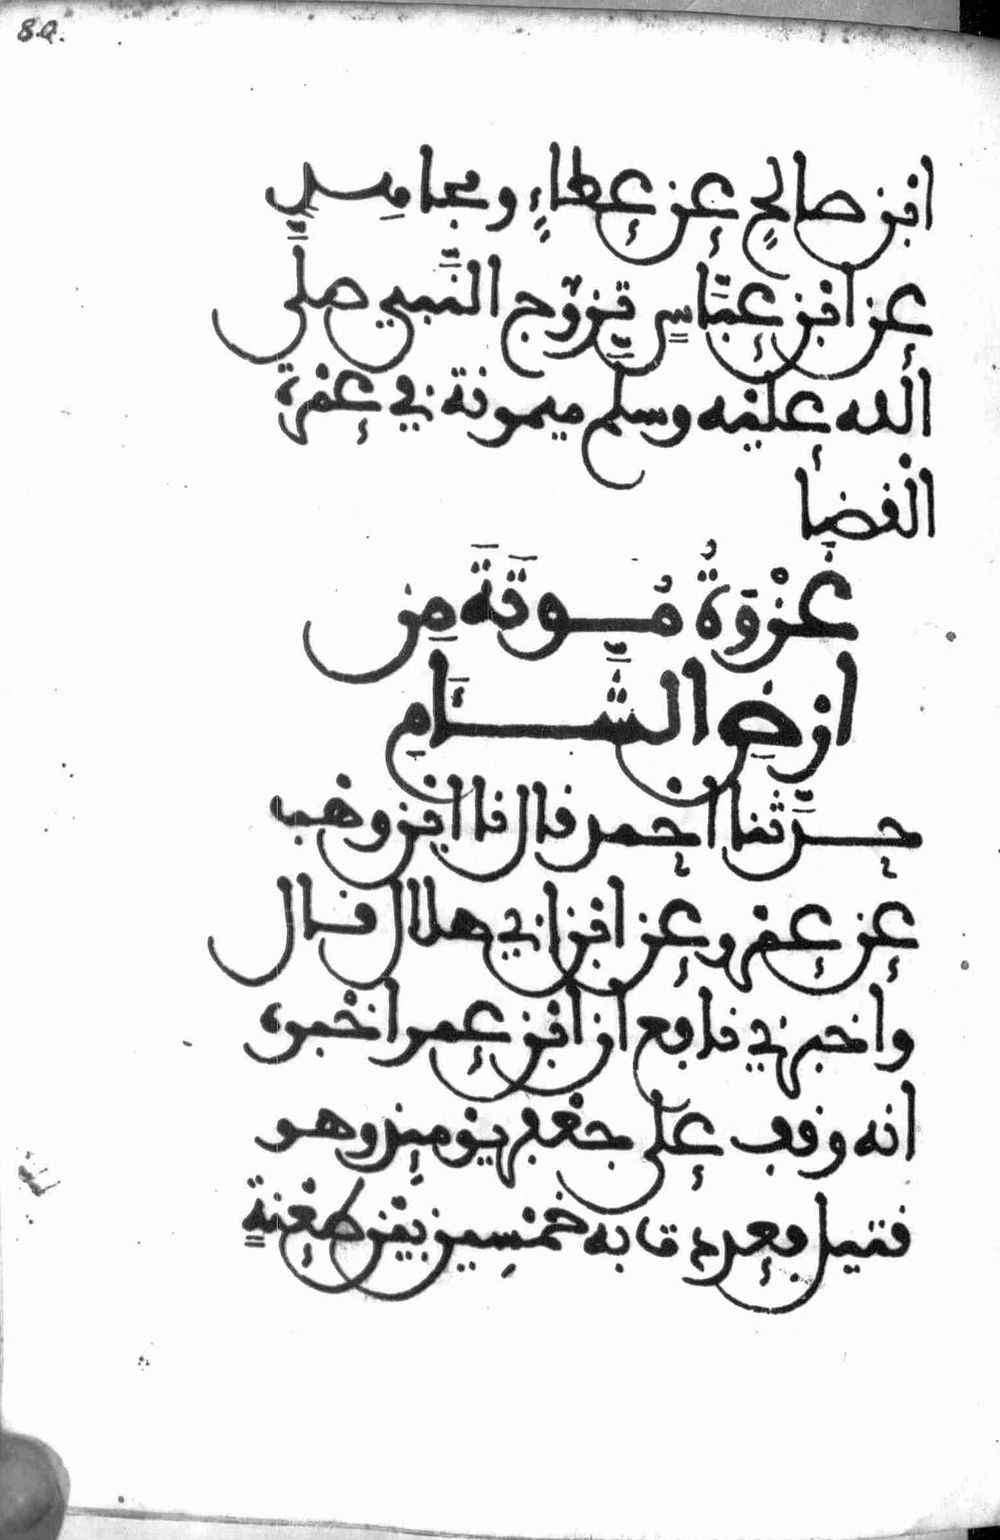 80.
ابن صالح عن عطاءٍ ومجاهدٍ
عن ابن عبَّاسٍ تزوَّج النَّبي صلَّى
الله عليه وسلم ميمونة في عمرة
القضا
غَزْوَةُ مُوتَةَ مِن
ارْضِ الشَّامِ
حدَّثنا احمد قال نا ابن وهب
عن عمرو عن ابن ابي هلال قال
واخبرني نافع ان ابن عمر اخبره
انه وقف على جعفر يومئذ وهو
قتيل فعددت به خمسين بين طعنةٍ